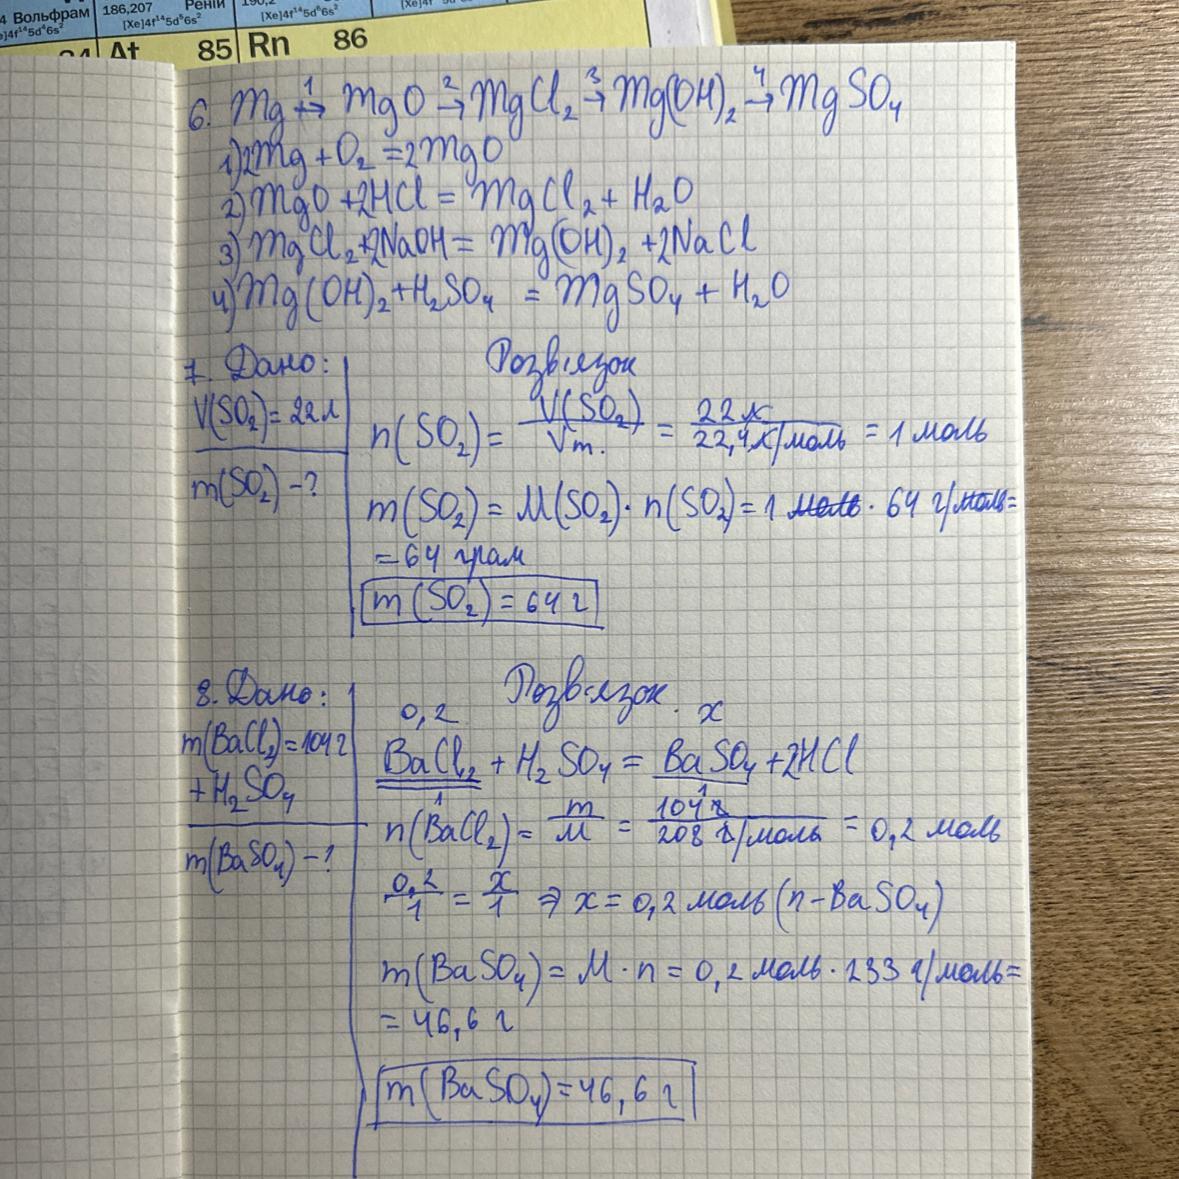 4 Вольфрам
186,207 Реній
[Xe]4f¹⁴5d⁵6s²
[Xe]4f¹⁴5d⁶6s²
At 85 Rn 86
6. Mg →¹ MgO →² MgCl₂ →³ Mg(OH)₂ →⁴ MgSO₄
1) 2Mg + O₂ = 2MgO
2) MgO + 2HCl = MgCl₂ + H₂O
3) MgCl₂ + 2NaOH = Mg(OH)₂ + 2NaCl
4) Mg(OH)₂ + H₂SO₄ = MgSO₄ + H₂O
7. Дано:
V(SO₂) = 22л
m(SO₂) - ?
Розв'язок
n(SO₂) = V(SO₂)/Vm. = 22 л/22,4 л/моль = 1 моль
m(SO₂) = M(SO₂) · n(SO₂) = 1 моль · 64 г/моль =
= 64 грам
m(SO₂) = 64 г
8. Дано:
m(BaCl₂) = 104 г
+ H₂SO₄
m(BaSO₄) - ?
Розв'язок.
0,2 x
BaCl₂ + H₂SO₄ = BaSO₄ + 2HCl
1 1
n(BaCl₂) = m/M = 104 г/208 г/моль = 0,2 моль
0,2/1 = x/1 ⇒ x = 0,2 моль (n - BaSO₄)
m(BaSO₄) = M · n = 0,2 моль · 233 г/моль =
= 46,6 г
m(BaSO₄) = 46,6 г